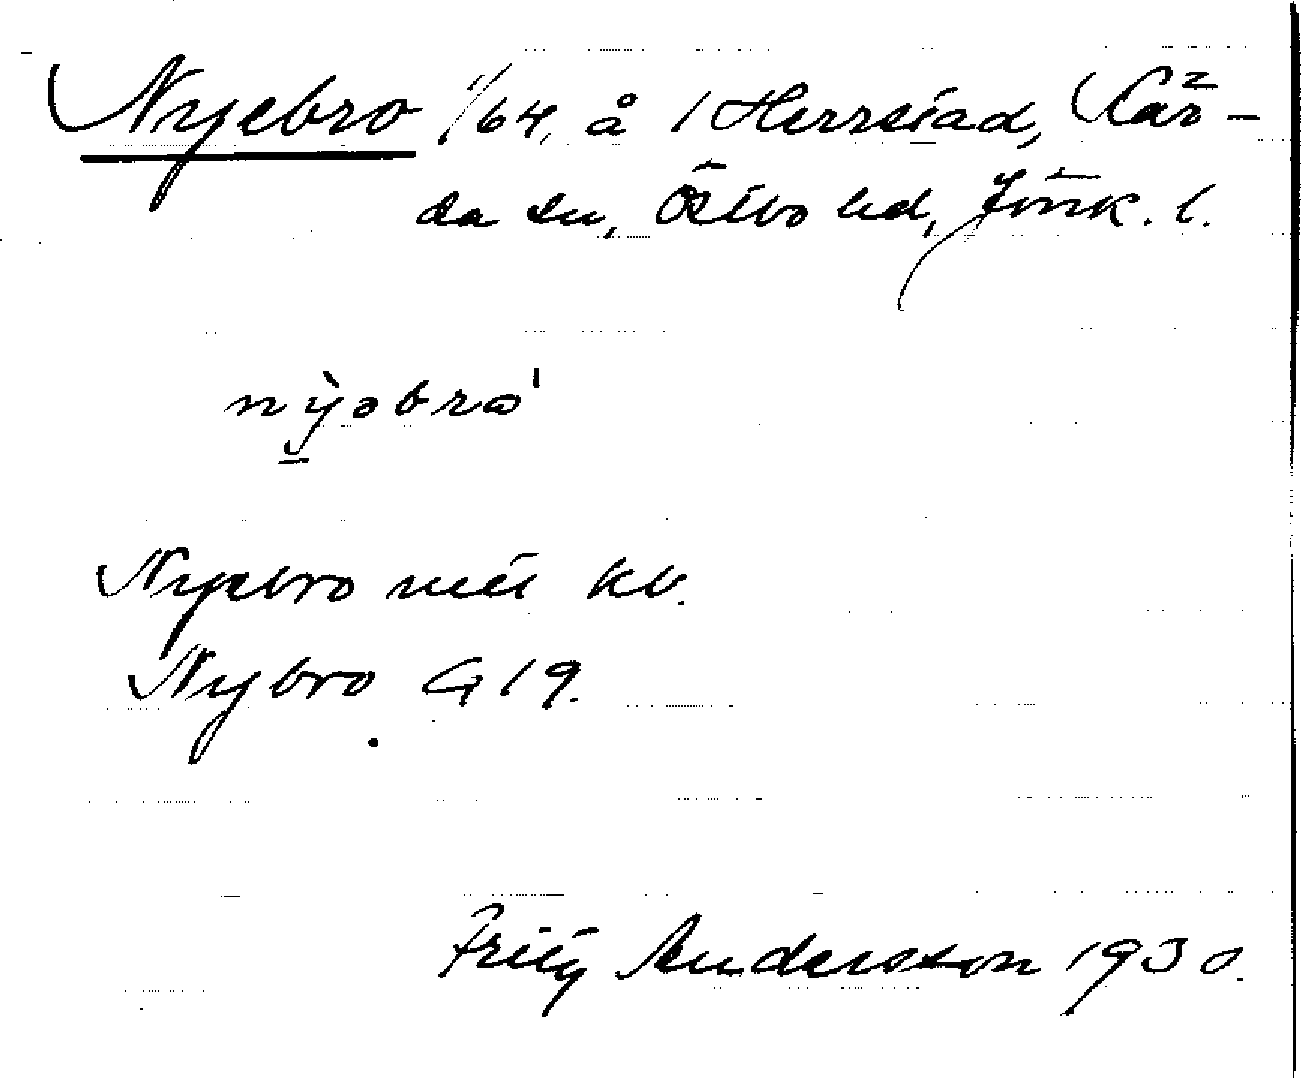 Nyebro 1/64, å 1 Herrstad, Kär-
da sn, Östbo hd, Jönk. l.
nỳobro'
Nyebro mtl kb.
Nybro G 19.
Fritz Andersson 1930.